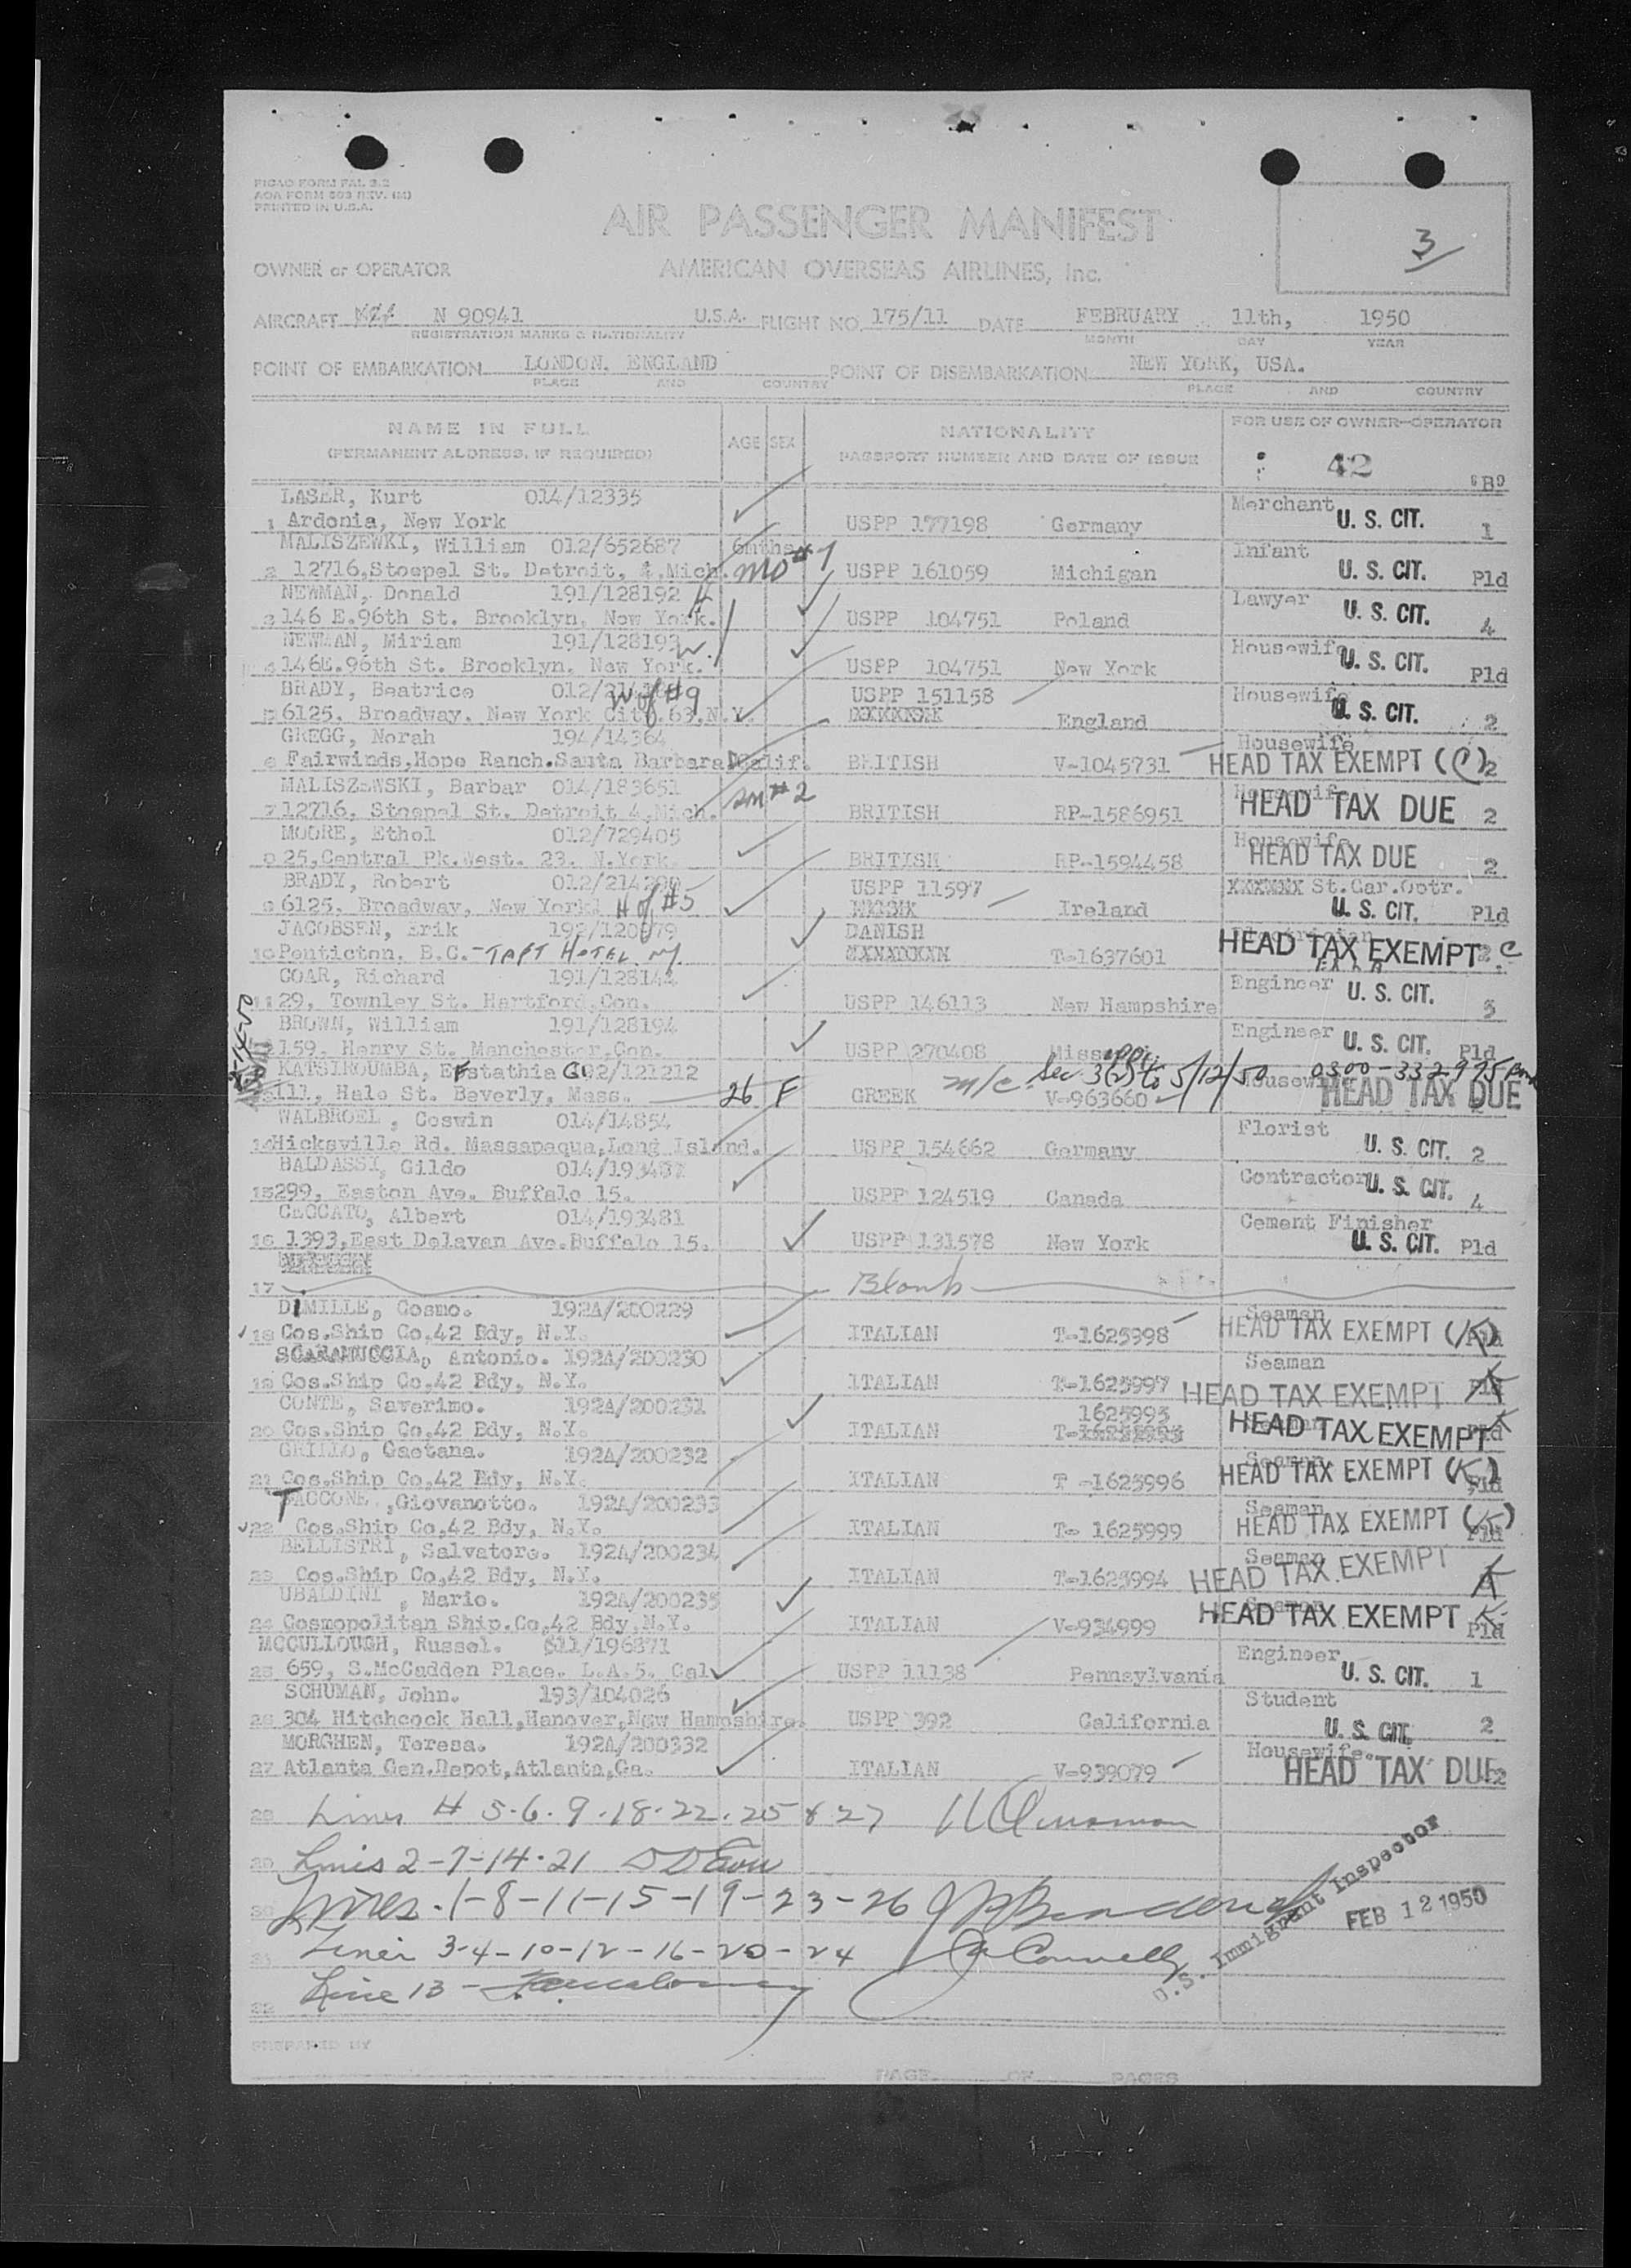 PICAO FORM FAL 3.2
AOA FORM 603 REV. (M)
PRINTED IN U.S.A.
AIR PASSENGER MANIFEST
3
OWNER or OPERATOR AMERICAN OVERSEAS AIRLINES, Inc.
AIRCRAFT N 90941 U.S.A. FLIGHT NO. 175/11 DATE FEBRUARY 11th, 1950
REGISTRATION MARKS & NATIONALITY MONTH DAY YEAR
POINT OF EMBARKATION LONDON, ENGLAND POINT OF DISEMBARKATION NEW YORK, USA.
PLACE AND COUNTRY PLACE AND COUNTRY
NAME IN FULL AGE SEX NATIONALITY FOR USE OF OWNER—OPERATOR
(PERMANENT ADDRESS, IF REQUIRED) PASSPORT NUMBER AND DATE OF ISSUE 42 "B"
LASER, Kurt 014/12335 Merchant
1 Ardonia, New York USPP 177198 Germany U. S. CIT. 1
MALISZEWKI, William 012/652687 6mths Infant
2 12716,Stoepel St. Detroit, 4,Mich. mo #7 USPP 161059 Michigan U. S. CIT. Pld
NEWMAN, Donald 191/128192 H Lawyer
3 146 E.96th St. Brooklyn, New York. USPP 104751 Poland U. S. CIT. 4
NEWMAN, Miriam 191/128193 W. Housewife
4 146E.96th St. Brooklyn, New York. USPP 104751 New York U. S. CIT. Pld
BRADY, Beatrice 012/ W of #9 USPP 151158 Housewife
5 6125, Broadway, New York City.63,N.Y. England U. S. CIT. 2
GREGG, Norah 194/14364 Housewife
6 Fairwinds,Hope Ranch.Santa Barbara Calif. BRITISH V-1045731 HEAD TAX EXEMPT (C) 2
MALISZEWSKI, Barbar 014/183651 Housewife
7 12716, Stoepel St. Detroit 4,Mich. #2 BRITISH RP-1586951 HEAD TAX DUE 2
MOORE, Ethel 012/729405 Housewife
8 25,Central Pk.West. 23. N.York. BRITISH RP-1594458 HEAD TAX DUE 2
BRADY, Robert 012/214290 USPP 11597 XXXXXX St.Car.Optr.
9 6125, Broadway, New York H of #5 Ireland U. S. CIT. Pld
JACOBSEN, Erik 192/120879 DANISH Electrician
10 Penticton, B.C.- TAFT HOTEL NY T-1637601 HEAD TAX EXEMPT C
COAR, Richard 191/128144 Engineer
11 29, Townley St. Hartford,Con. USPP 146113 New Hampshire U. S. CIT. 3
BROWN, William 191/128194 Engineer
159, Henry St. Manchester,Con. USPP 270408 U. S. CIT. Pld
KATSIROUMBA, Efstathia G 192/121212 m/c Sec 3(2) to 5/12/50 0300-332995 Housewife
111, Hale St. Beverly, Mass. 26 F GREEK V-963660 HEAD TAX DUE
WALBROEL, Coswin 014/14854 Florist
14 Hicksville Rd. Massapequa,Long Island. USPP 154662 Germany U. S. CIT. 2
BALDASSI, Gildo 014/193487 Contractor
15 299, Easton Ave. Buffalo 15. USPP 124519 Canada U. S. CIT. 4
CECCATO, Albert 014/193481 Cement Finisher
16 1393,East Delavan Ave.Buffalo 15. USPP 131578 New York U. S. CIT. Pld
17 Blank
DIMILLE, Cosmo. 192A/200229 Seaman
18 Cos.Ship Co,42 Bdy, N.Y. ITALIAN T-1625998 HEAD TAX EXEMPT (K) Pld
SCARAMUCCIA, Antonio. 192A/200230 Seaman
19 Cos.Ship Co,42 Bdy, N.Y. ITALIAN T-1625997 HEAD TAX EXEMPT K Pld
CONTE, Saverimo. 192A/200231 1625993
20 Cos.Ship Co,42 Bdy, N.Y. ITALIAN HEAD TAX EXEMPT K Pld
GRILLO, Gaetana. 192A/200232 Seaman
21 Cos.Ship Co,42 Bdy, N.Y. ITALIAN T -1625996 HEAD TAX EXEMPT (K) Pld
TACCONE ,Giovanotto. 192A/200233 Seaman
22 Cos.Ship Co,42 Bdy, N.Y. ITALIAN T- 1625999 HEAD TAX EXEMPT (K) Pld
BELLISTRI, Salvatore. 192A/200234 Seaman
23 Cos.Ship Co,42 Bdy, N.Y. ITALIAN T-1625994 HEAD TAX EXEMPT K
UBALDINI , Mario. 192A/200235 Seaman
24 Cosmopolitan Ship.Co,42 Bdy,N.Y. ITALIAN V-934999 HEAD TAX EXEMPT K Pld
MCCULLOUGH, Russel. 611/196871 Engineer
25 659, S.McCadden Place. L.A.5. Cal USPP 11138 Pennsylvania U. S. CIT. 1
SCHUMAN, John. 193/104026 Student
26 304 Hitchcock Hall,Hanover,New Hampshire. USPP 392 California U. S. CIT. 2
MORGHEN, Teresa. 192A/200332 Housewife.
27 Atlanta Gen.Depot,Atlanta,Ga. ITALIAN V-939079 HEAD TAX DUE 2
28 Lines # 5-6-9-18-22-25 & 27
29 Lines 2-7-14-21
30 Lines 1-8-11-15-19-23-26
31 Lines 3-4-10-12-16-20-24 Connelly
32 Line 13 -
U.S. Immigrant Inspector
FEB 12 1950
PREPARED BY
PAGE OF PAGES